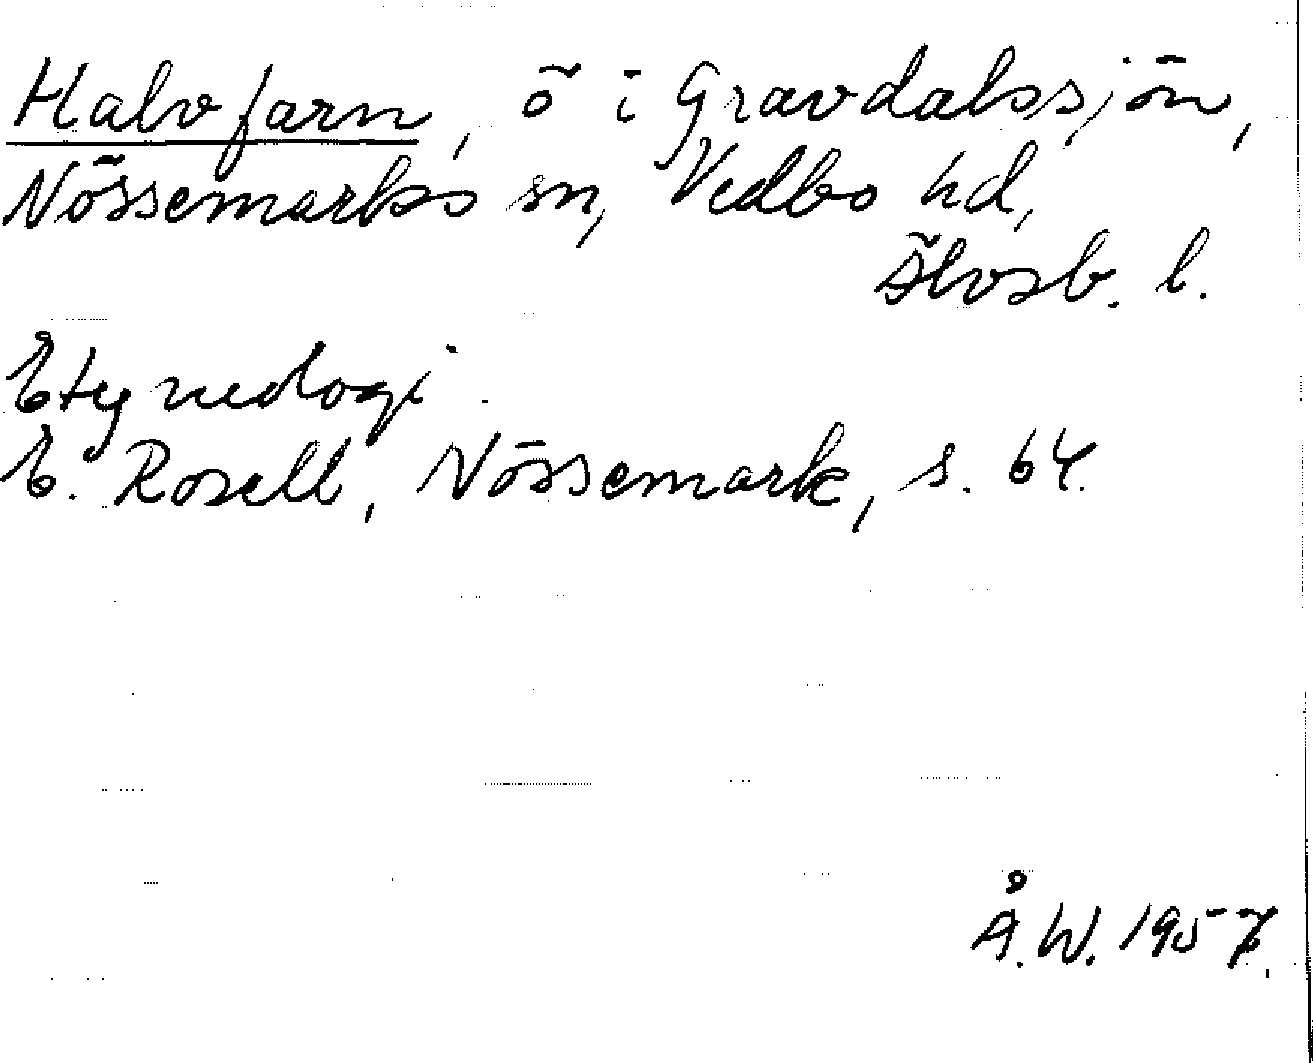 Halvfarn, ö i Gravdalssjön,
Nössemarks sn, Vedbo hd,
Älvsb. l.
Etymologi.
E. Rosell, Nössemark, s. 64.
Å.W. 1957.